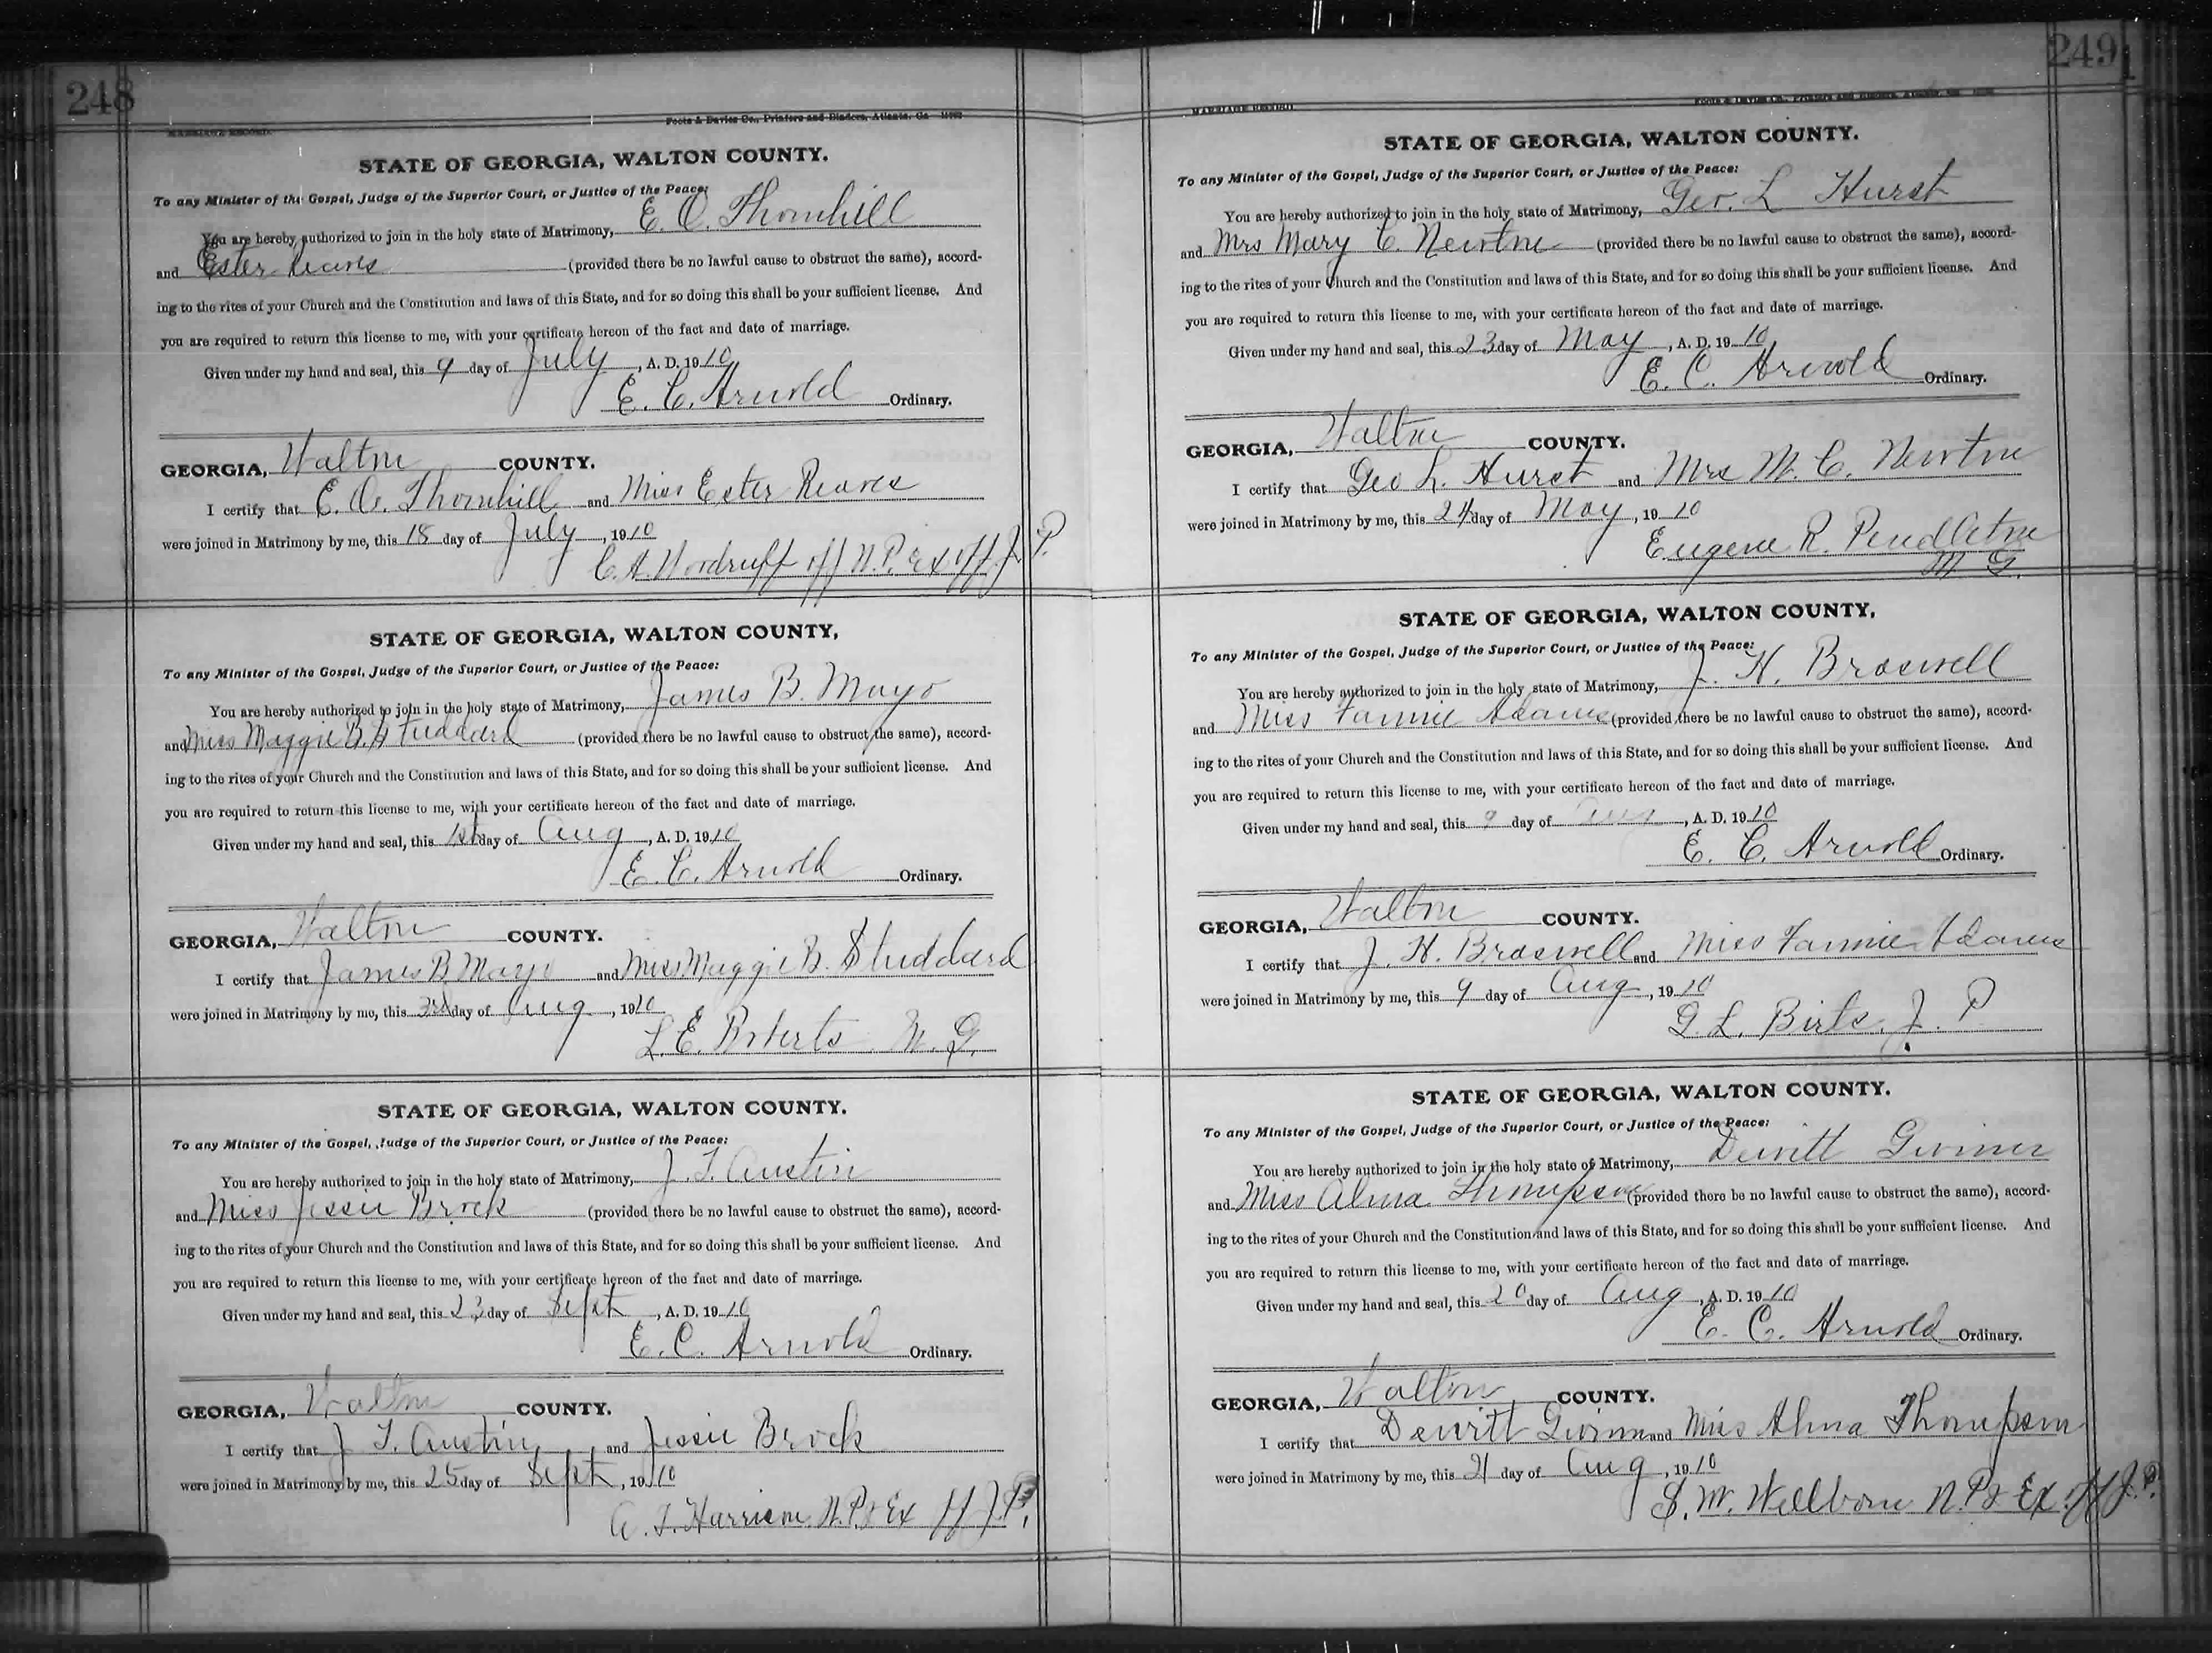 248
MARRIAGE RECORD.
Foote & Davies Co., Printers and Binders, Atlanta, Ga
STATE OF GEORGIA, WALTON COUNTY.
To any Minister of the Gospel, Judge of the Superior Court, or Justice of the Peace:
You are hereby authorized to join in the holy state of Matrimony, E. O. Thornhill
and Ester Reaves (provided there be no lawful cause to obstruct the same), accord-
ing to the rites of your Church and the Constitution and laws of this State, and for so doing this shall be your sufficient license. And
you are required to return this license to me, with your certificate hereon of the fact and date of marriage.
Given under my hand and seal, this 9 day of July, A. D. 1910
E. C. Arnold Ordinary.
GEORGIA, Walton COUNTY.
I certify that E. O. Thornhill and Miss Ester Reaves
were joined in Matrimony by me, this 18 day of July, 1910
C. A. Woodruff off N. P. Ex off J. P.
STATE OF GEORGIA, WALTON COUNTY,
To any Minister of the Gospel, Judge of the Superior Court, or Justice of the Peace:
You are hereby authorized to join in the holy state of Matrimony, James B. Mayo
and Miss Maggie B. Studdard (provided there be no lawful cause to obstruct the same), accord-
ing to the rites of your Church and the Constitution and laws of this State, and for so doing this shall be your sufficient license. And
you are required to return this license to me, with your certificate hereon of the fact and date of marriage.
Given under my hand and seal, this 1st day of Aug, A. D. 1910
E. C. Arnold Ordinary.
GEORGIA, Walton COUNTY.
I certify that James B. Mayo and Miss Maggie B. Studdard
were joined in Matrimony by me, this 3rd day of Aug, 1910
L. E. Roberts M. G.
STATE OF GEORGIA, WALTON COUNTY.
To any Minister of the Gospel, Judge of the Superior Court, or Justice of the Peace:
You are hereby authorized to join in the holy state of Matrimony, J. T. Austin
and Miss Jessie Brock (provided there be no lawful cause to obstruct the same), accord-
ing to the rites of your Church and the Constitution and laws of this State, and for so doing this shall be your sufficient license. And
you are required to return this license to me, with your certificate hereon of the fact and date of marriage.
Given under my hand and seal, this 23 day of Sept, A. D. 1910
E. C. Arnold Ordinary.
GEORGIA, Walton COUNTY.
I certify that J. T. Austin, and Jessie Brock
were joined in Matrimony by me, this 25 day of Sept, 1910
A. T. Harrison N. P. & Ex off J. P.
249
MARRIAGE RECORD.
STATE OF GEORGIA, WALTON COUNTY.
To any Minister of the Gospel, Judge of the Superior Court, or Justice of the Peace:
You are hereby authorized to join in the holy state of Matrimony, Geo. L Hurst
and Mrs Mary C. Newton (provided there be no lawful cause to obstruct the same), accord-
ing to the rites of your Church and the Constitution and laws of this State, and for so doing this shall be your sufficient license. And
you are required to return this license to me, with your certificate hereon of the fact and date of marriage.
Given under my hand and seal, this 23 day of May, A. D. 1910
E. C. Arnold Ordinary.
GEORGIA, Walton COUNTY.
I certify that Geo L. Hurst and Mrs M. C. Newton
were joined in Matrimony by me, this 24 day of May, 1910
Eugene R. Pendleton
M G.
STATE OF GEORGIA, WALTON COUNTY,
To any Minister of the Gospel, Judge of the Superior Court, or Justice of the Peace:
You are hereby authorized to join in the holy state of Matrimony, J. H. Braswell
and Miss Fannie Adams (provided there be no lawful cause to obstruct the same), accord-
ing to the rites of your Church and the Constitution and laws of this State, and for so doing this shall be your sufficient license. And
you are required to return this license to me, with your certificate hereon of the fact and date of marriage.
Given under my hand and seal, this 9 day of Aug, A. D. 1910
E. C. Arnold Ordinary.
GEORGIA, Walton COUNTY.
I certify that J. H. Braswell and Miss Fannie Adams
were joined in Matrimony by me, this 9 day of Aug, 1910
L. Birts, J. P
STATE OF GEORGIA, WALTON COUNTY.
To any Minister of the Gospel, Judge of the Superior Court, or Justice of the Peace:
You are hereby authorized to join in the holy state of Matrimony, Dewitt Gwinn
and Miss Alma Thompson (provided there be no lawful cause to obstruct the same), accord-
ing to the rites of your Church and the Constitution and laws of this State, and for so doing this shall be your sufficient license. And
you are required to return this license to me, with your certificate hereon of the fact and date of marriage.
Given under my hand and seal, this 20 day of Aug, A. D. 1910
E. C. Arnold Ordinary.
GEORGIA, Walton COUNTY.
I certify that Dewitt Gwinn and Miss Alma Thompson
were joined in Matrimony by me, this 21 day of Aug, 1910
S. W. Wellborn N. P & Ex off J. P.